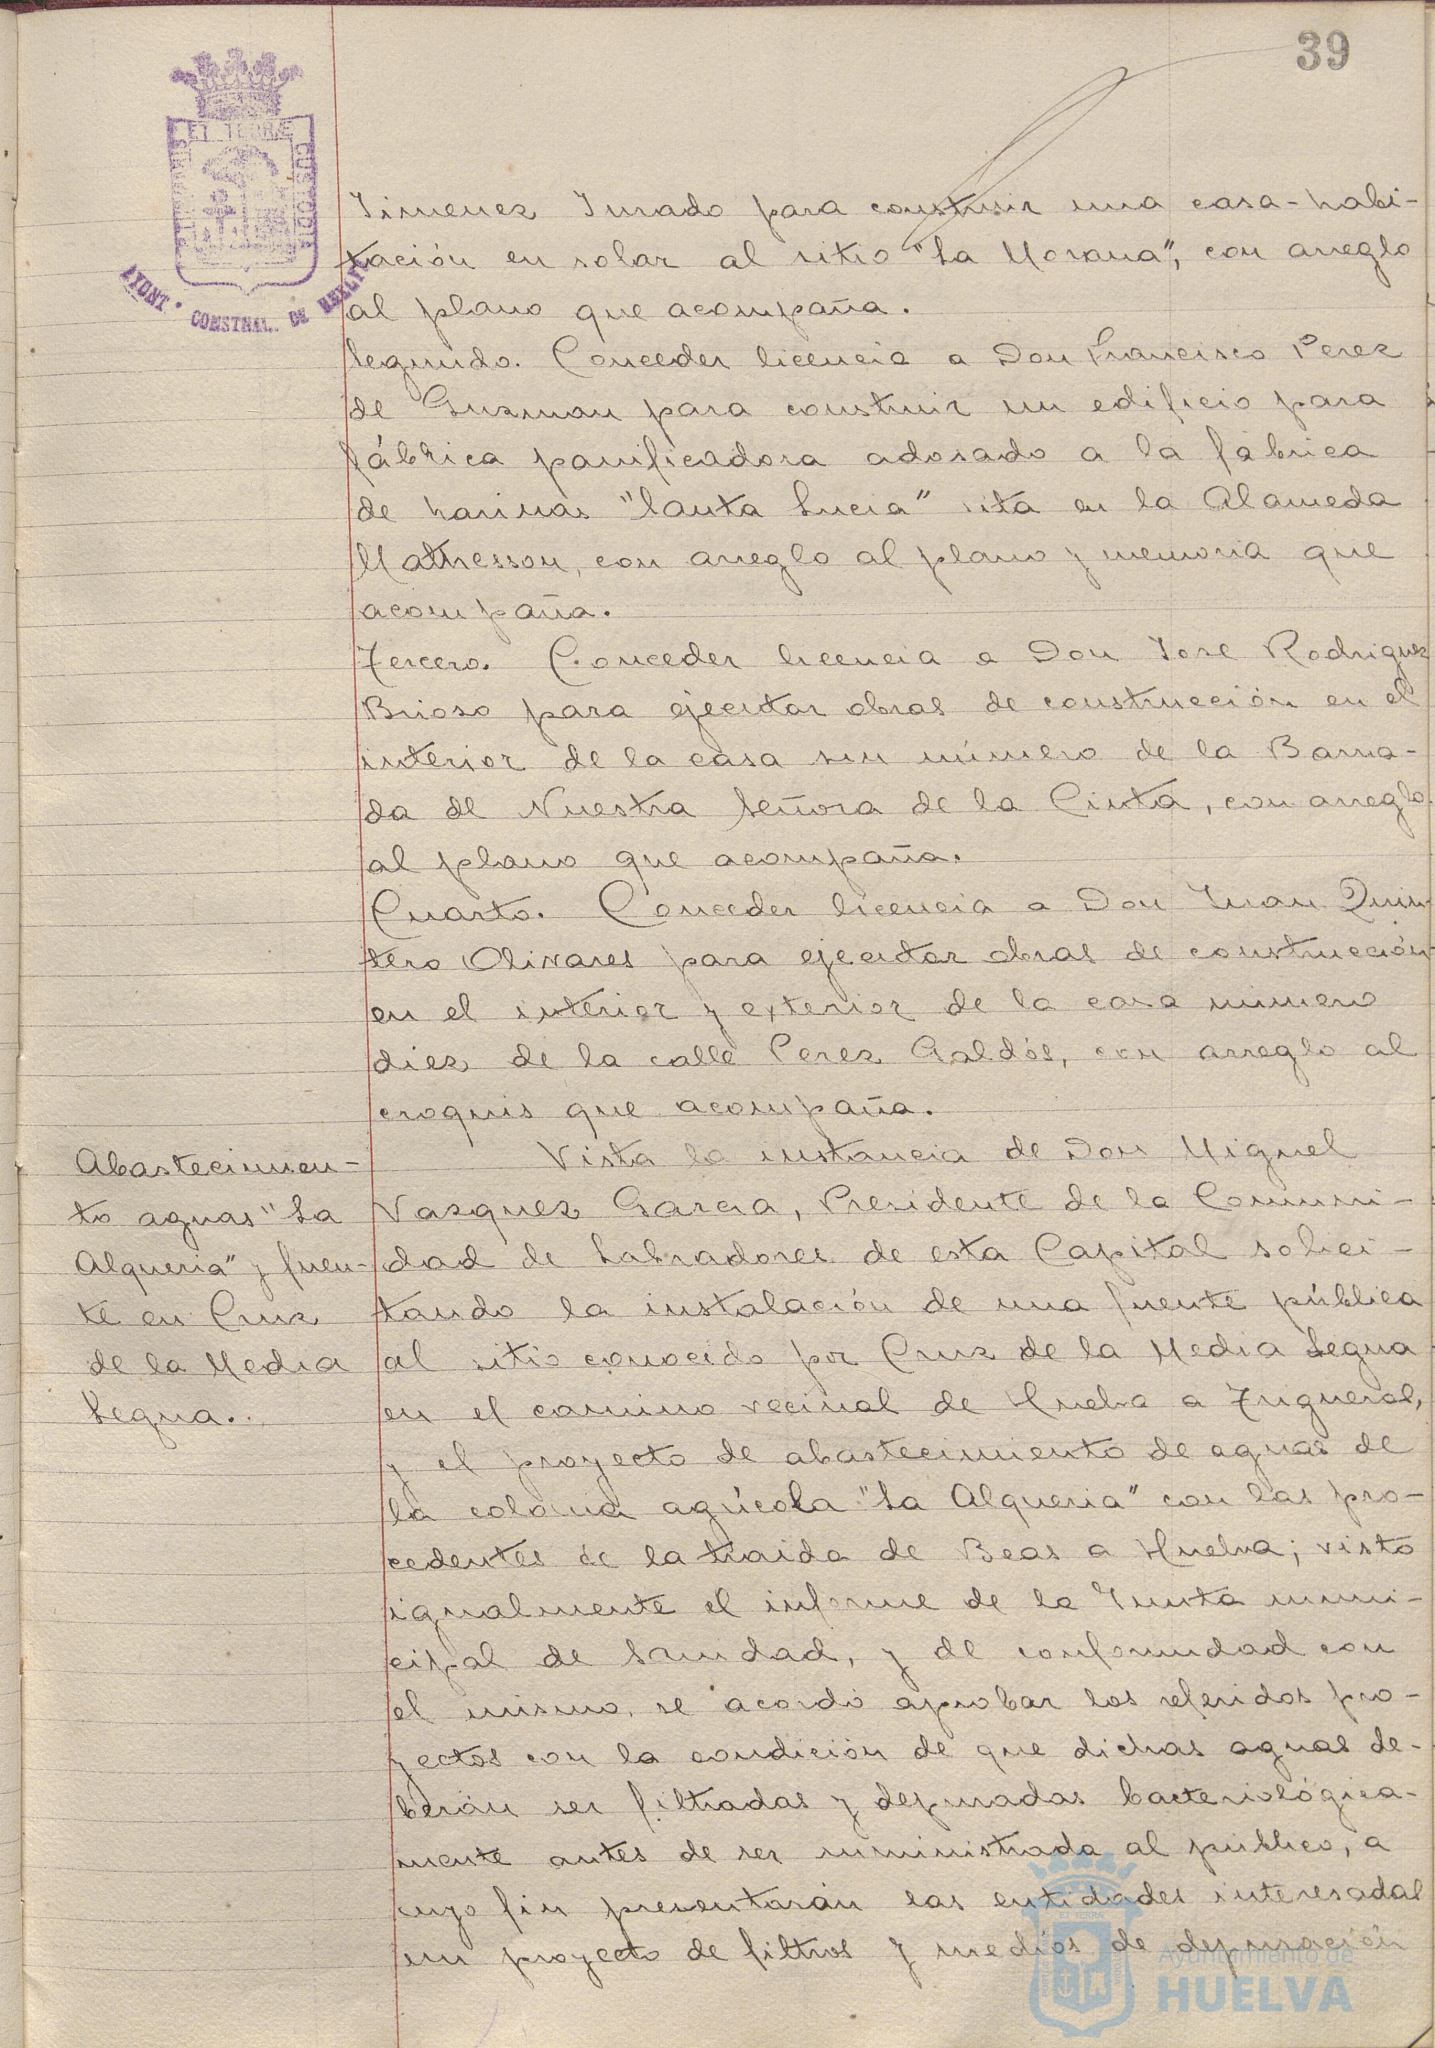 39
ET TERRÆ
CUSTODIA
CONSTNAL. DE
Jimenez Jurado para construir una casa-habi-
tación en solar al sitio "La Morana", con arreglo
al plano que acompaña.
Segundo. Conceder licencia a Don Francisco Perez
de Guzman para construir un edificio para
fábrica panificadora adosado a la fábrica
de harinas "Santa Lucia" sita en la Alameda
Mathesson, con arreglo al plano y memoria que
acompaña.
Tercero. Conceder licencia a Don Jose Rodriguez
Brioso para ejecutar obras de construcción en el
interior de la casa sin número de la Barria-
da de Nuestra Señora de la Cinta, con arreglo
al plano que acompaña.
Cuarto. Conceder licencia a Don Juan Quin-
tero Olivares para ejecutar obras de construcción
en el interior y exterior de la casa número
diez de la calle Perez Galdós, con arreglo al
croquis que acompaña.
Abastecimien-
to aguas "La
Alqueria" y fuen-
te en Cruz
de la Media
Legua.
Vista la instancia de Don Miguel
Vazquez Garcia, Presidente de la Comuni-
dad de Labradores de esta Capital solici-
tando la instalación de una fuente pública
al sitio conocido por Cruz de la Media Legua
en el camino vecinal de Huelva a Trigueros,
y el proyecto de abastecimiento de aguas de
la colonia agrícola "La Alqueria" con las pro-
cedentes de la traida de Beas a Huelva; visto
igualmente el informe de la Junta muni-
cipal de Sanidad, y de conformidad con
el mismo, se acordó aprobar los referidos pro-
yectos con la condición de que dichas aguas de-
berán ser filtradas y depuradas bacteriológica-
mente antes de ser suministrada al público, a
cuyo fin presentarán las entidades interesadas
un proyecto de filtros y medios de depuración
Ayuntamiento de
HUELVA